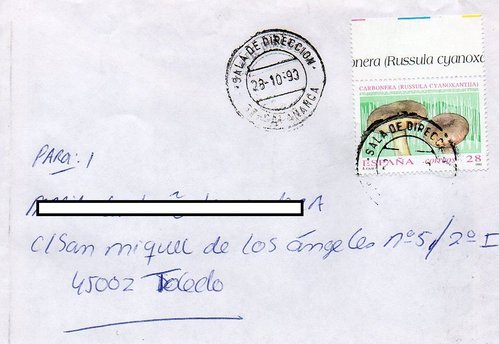 onera (Russula cyanoxa
CARBONERA (RUSSULA CYANOXANTHA)
ESPAÑA correos 28
SALA DE DIRECCION
SALA DE DIRECCION
28-10-93
SALAMANCA
PARA:
C/San miguel de los ángeles nº5/2º I
45002 Toledo